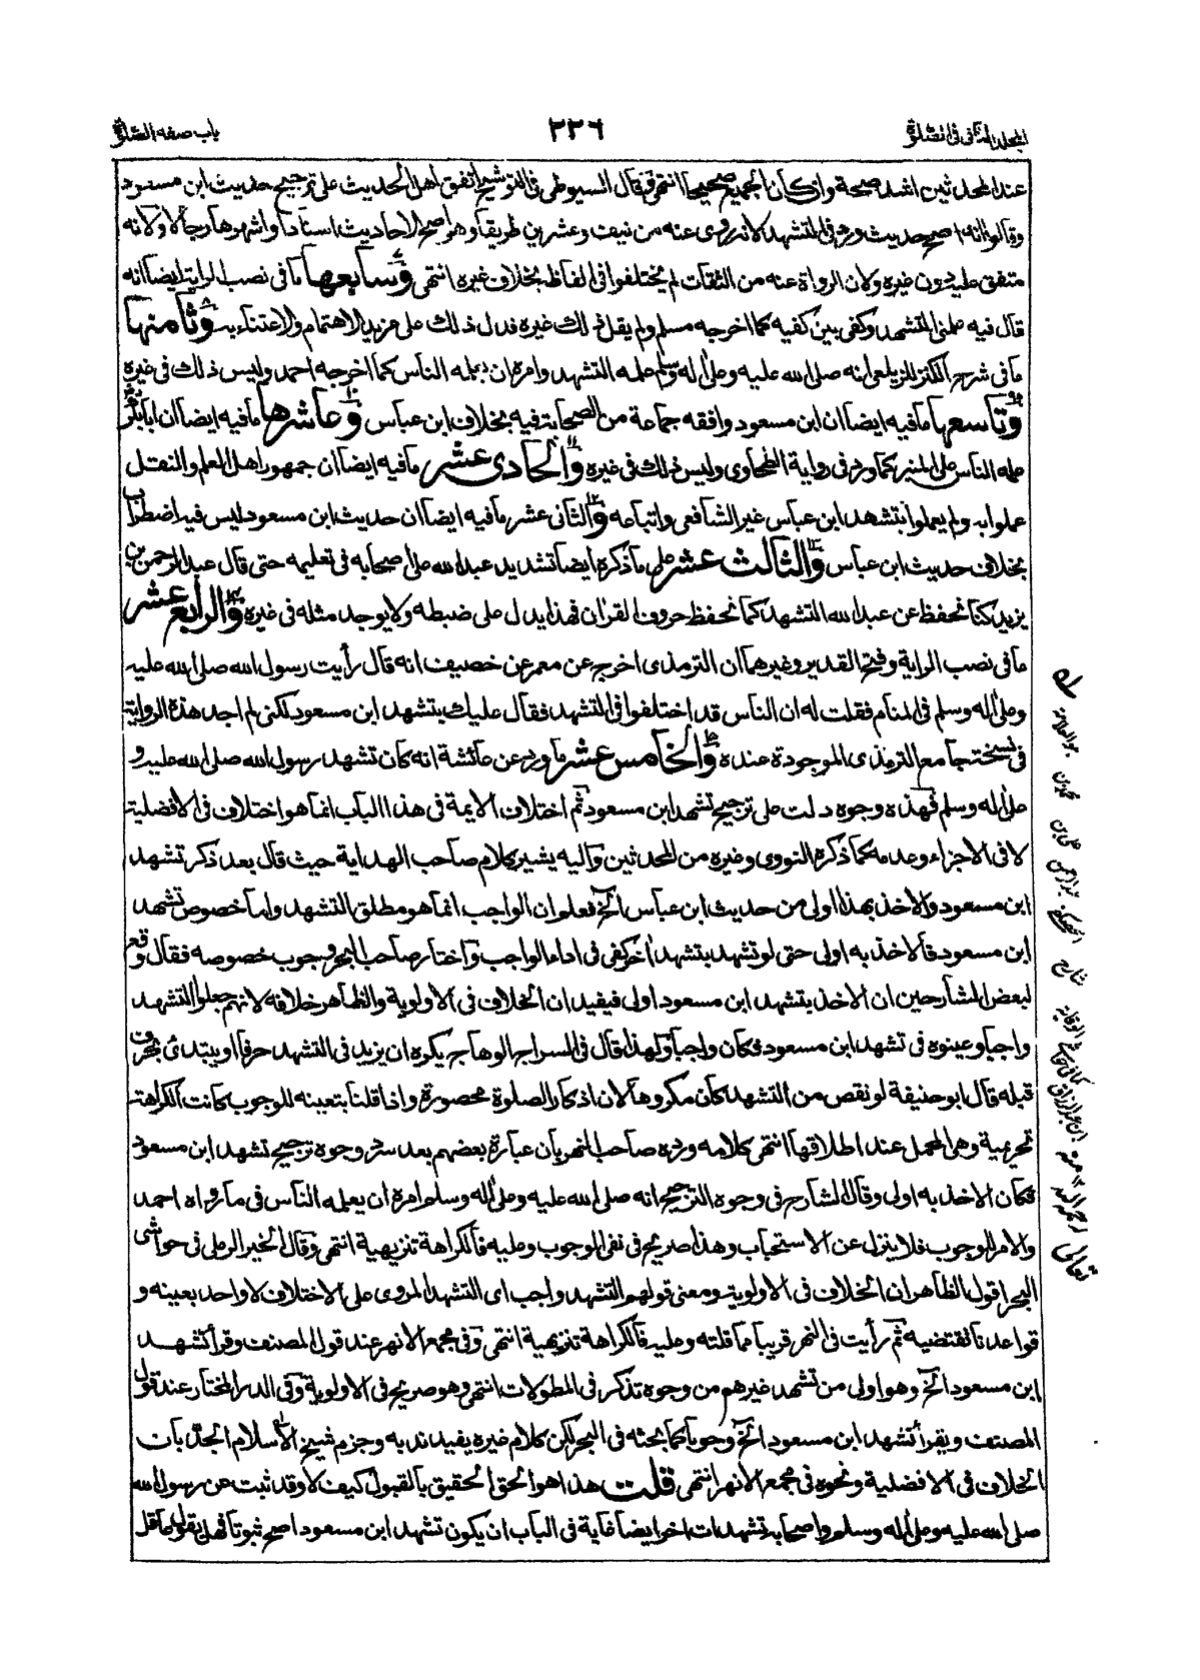 المجلد الثاني في الصلوة
٢٢٦
باب صفه الصلوة
عند المحدثين اشد صحة وان كان الجميع صحيحا انتهى فقال السيوطي في التوشيح اتفق اهل الحديث على ترجيح حديث ابن مسعود
وقالوا انه اصح حديث ورد في التشهد لانه روى عنه من نيف وعشرين طريقا وهو اصح الاحاديث اسنادا واشهرها رجالا ولانه
متفق عليه دون غيره ولان الرواة عنه من الثقات لم يختلفوا في الفاظه بخلاف غيره انتهى وسابعها ما في نصب الراية ايضا انه
قال فيه علمني التشهد وكفى بين كفيه كما اخرجه مسلم ولم يقل ذلك غيره فدل ذلك على مزيد الاهتمام والاعتناء به وثامنها
ما في شرح الكنز للزيلعي انه صلى الله عليه وعلى اله وسلم علمه التشهد وامره ان يعلمه الناس كما اخرجه احمد وليس ذلك في غيره
وتاسعها ما فيه ايضا ان ابن مسعود وافقه جماعة من الصحابة فيه بخلاف ابن عباس وعاشرها ما فيه ايضا ان ابا بكر
علمه الناس على المنبر كما ورد في رواية الطحاوى وليس ذلك في غيره والحادي عشر ما فيه ايضا ان جمهور اهل العلم والنقل
عملوا به ولم يعملوا بتشهد ابن عباس غير الشافعي واتباعه والثاني عشر ما فيه ايضا ان حديث ابن مسعود ليس فيه اضطراب
بخلاف حديث ابن عباس والثالث عشر على ما ذكره ايضا تشديد عبد الله على اصحابه في تعليمه حتى قال عبد الرحمن بن
يزيد كنا نحفظ عن عبد الله التشهد كما نحفظ حروف القران فهذا يدل على ضبطه ولا يوجد مثله في غيره والرابع عشر
ما في نصب الراية وفتح القدير وغيرهما ان الترمذى اخرج عن معمر عن خصيف انه قال رأيت رسول الله صلى الله عليه
وعلى اله وسلم في المنام فقلت له ان الناس قد اختلفوا في التشهد فقال عليك بتشهد ابن مسعود لكني لم اجد هذه الرواية
في نسخة جامع الترمذى الموجودة عنده والخامس عشر ما ورد عن عائشة انه كان تشهد رسول الله صلى الله عليه و
على اله وسلم فهذه وجوه دلت على ترجيح تشهد ابن مسعود ثم اختلاف الايمة في هذا الباب انما هو اختلاف في الافضلية
لا في الاجزاء وعدمه كما ذكره النووى وغيره من المحدثين واليه يشير كلام صاحب الهداية حيث قال بعد ذكر تشهد
ابن مسعود والاخذ بهذا اولى من حديث ابن عباس الخ فعلم ان الواجب انما هو مطلق التشهد واما خصوص تشهد
ابن مسعود فالاخذ به اولى حتى لو تشهد بتشهد اخر كفى في اداء الواجب واختار صاحب البحر وجوب خصوصه فقال وقع
لبعض الشارحين ان الاخذ بتشهد ابن مسعود اولى فيفيد ان الخلاف في الاولوية والظاهر خلافه لانهم جعلوا التشهد
واجبا وعينوه في تشهد ابن مسعود فكان واجبا ولهذا قال في السراج الوهاج يكره ان يزيد في التشهد حرفا او يبتدئ بحرف
قبله قال ابو حنيفة لو نقص من التشهد كان مكروها لان اذكار الصلوة محصورة واذا قلنا بتعينه للوجوب كانت الكراهة
تحريمية وهي المحمل عند اطلاقها انتهى كلامه ورده صاحب النهر بان عبارة بعضهم بعد سرد وجوه ترجيح تشهد ابن مسعود
فكان الاخذ به اولى وقال الشارح في وجوه الترجيح انه صلى الله عليه وعلى اله وسلم امره ان يعلمه الناس في ما رواه احمد
والامر للوجوب فلا ينزل عن الاستحباب وهذا صريح في نفي الوجوب وعليه فالكراهة تنزيهية انتهى وقال الخير الرملي في حواشي
البحر اقول الظاهر ان الخلاف في الاولوية ومعنى قولهم التشهد واجب اى التشهد المروى على الاختلاف لا واحد بعينه و
قواعدنا تقتضيه ثم رأيت في النهر قريبا مما قلته وعليه فالكراهة تنزيهية انتهى وفي مجمع الانهر عند قول المصنف وقرأ تشهد
ابن مسعود الخ وهو اولى من تشهد غيرهم من وجوه تذكر في المطولات انتهى وهو صريح في الاولوية وفي الدر المختار عند قول
المصنف ويقرأ تشهد ابن مسعود الخ وجوبا كما بحثه في البحر لكن كلام غيره يفيد ندبه وجزم شيخ الاسلام الجد بان
الخلاف في الافضلية ونحوه في مجمع الانهر انتهى قلت هذا هو الحق الحقيق بالقبول كيف لا وقد ثبت عن رسول الله
صلى الله عليه وعلى اله وسلم واصحابه تشهدات اخر ايضا غاية في الباب ان يكون تشهد ابن مسعود اصح ثبوتا فهل يقول عاقل